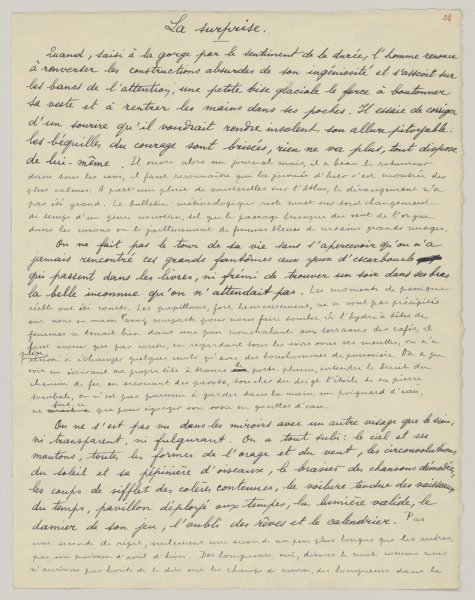 28
La surprise.
Quand, saisi à la gorge par le sentiment de la durée, l'homme renonce
à renverser les constructions absurdes de son ingéniosité et s'asseoit sur
les bancs de l'attention, une petite bise glaciale le force à boutonner
sa veste et à rentrer les mains dans ses poches. Il essaie de corriger
d'un sourire qu'il voudrait rendre insolent son allure pitoyable:
les béquilles du courage sont brisées, rien ne va plus, tout dispose
de lui-même. Il ouvre alors un journal mais, il a beau le retourner
dans tous les sens, il faut reconnaître que la journée d'hier s'est montrée des
plus calmes. A part une pluie de sauterelles sur l'Atlas, le dérangement n'a
pas été grand. Le bulletin météorologique reste muet sur tout changement
de temps d'un genre nouveau, tel que le passage brusque du vent de l'orgue
dans les cocons ou le jaillissement de femmes bleues de certains grands nuages.
On ne fait pas le tour de sa vie sans s'apercevoir qu'on n'a
jamais rencontré ces grands fantômes aux yeux d'escarboucle
qui passent dans les livres, ni frémi de trouver un soir dans ses bras
la belle inconnue qu'on n'attendait pas. Les moments de panique
réelle ont été courts. Les papillons, fort heureusement, ne se sont pas précipités
sur nous en masse compacte pour nous faire tomber. Si l'hydre à têtes de
femmes se tenait bien dans une pose nonchalante aux terrasses des cafés, il
faut avouer que par contre, en regardant tous les soirs sous ses meubles, on n'a
à échanger quelques mots qu'avec des bonshommes de poussière. On a pu
voir en écrivant sa propre tête à travers son porte-plume, entendre le bruit du
chemin de fer en secouant des, toucher du doigt l'étoile de sa pierre
tombale, on n'est pas parvenu à garder dans la main un poignard d'eau,
ne fût-ce que pour égorger son rosie en gouttes d'eau.
On ne s'est pas vu dans les miroirs avec un autre visage que le sien,
ni transparent, ni fulgurant. On a tout subi: le ciel et ses
moutons, toutes les formes de l'orage et du vent, les circonvolutions
du soleil et sa pépinière d'oiseaux, le brasier des chansons démodées,
les coups de sifflet des colères contenues, la voilure tendue des vaisseaux
du temps, pavillon déployé aux tempes, la lumière valide, le
damier de son jeu, l'oubli des rêves et le calendrier. Pas
une seconde de répit, seulement une seconde un peu plus longue que les autres,
pas un poisson d'avril d'hiver. Des longueurs, oui, disons le mot comme nous
n'aurions pas honte de le dire sur les champs de course, des longueurs dans la